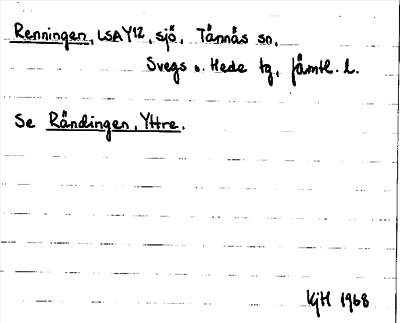 Renningen, LSA Y12, sjö, Tännäs sn,
Svegs o. Hede tg, Jämtl. l.
Se Rändingen, Yttre.
KjH 1968